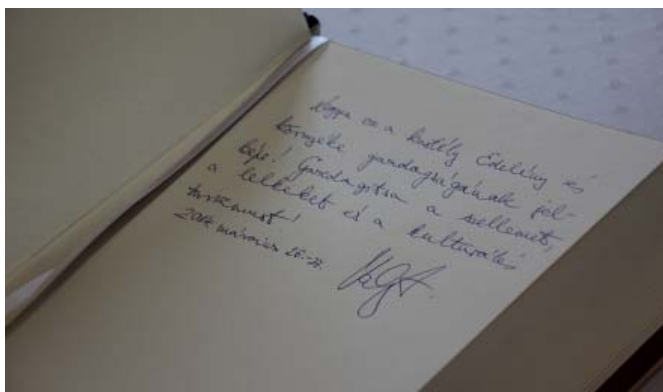 ez a kastély Edelény és
környéke gazdagságának jel-
képe! Gazdagítsa a szellemet,
a lelkeket és a kulturális
turizmust!
2014 március 26.-án.